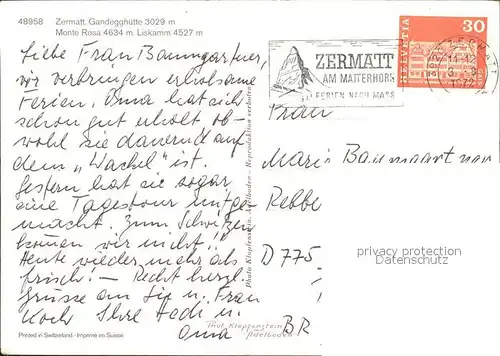 48958 Zermatt. Gandegghütte 3029 m
Monte Rosa 4634 m. Liskamm 4527 m
Liebe Frau Baumgartner,
wir verbringen erholsame
Ferien. Oma hat sich
schon gut erholt ob-
wohl sie dauernd auf
dem "Wackel" ist.
Gestern hat sie sogar
eine Tagestour mitge-
macht. Zum Schwitzen
kommen wir nicht!!
Heute wieder mehr als
frisch! - Recht herzl.
Grüsse an Sie u. Frau
Koch Ihre Hedi u.
Oma
Printed in Switzerland - Imprimé en Suisse
Photo Klopfenstein, Adelboden - Reproduktion verboten
Phot. Klopfenstein
Adelboden
ZERMATT
AM MATTERHORN
FERIEN NACH MASS
HELVETIA
30
ZERMATT
Frau
Maria Baumgartner
D 775
BR
privacy protection
Datenschutz